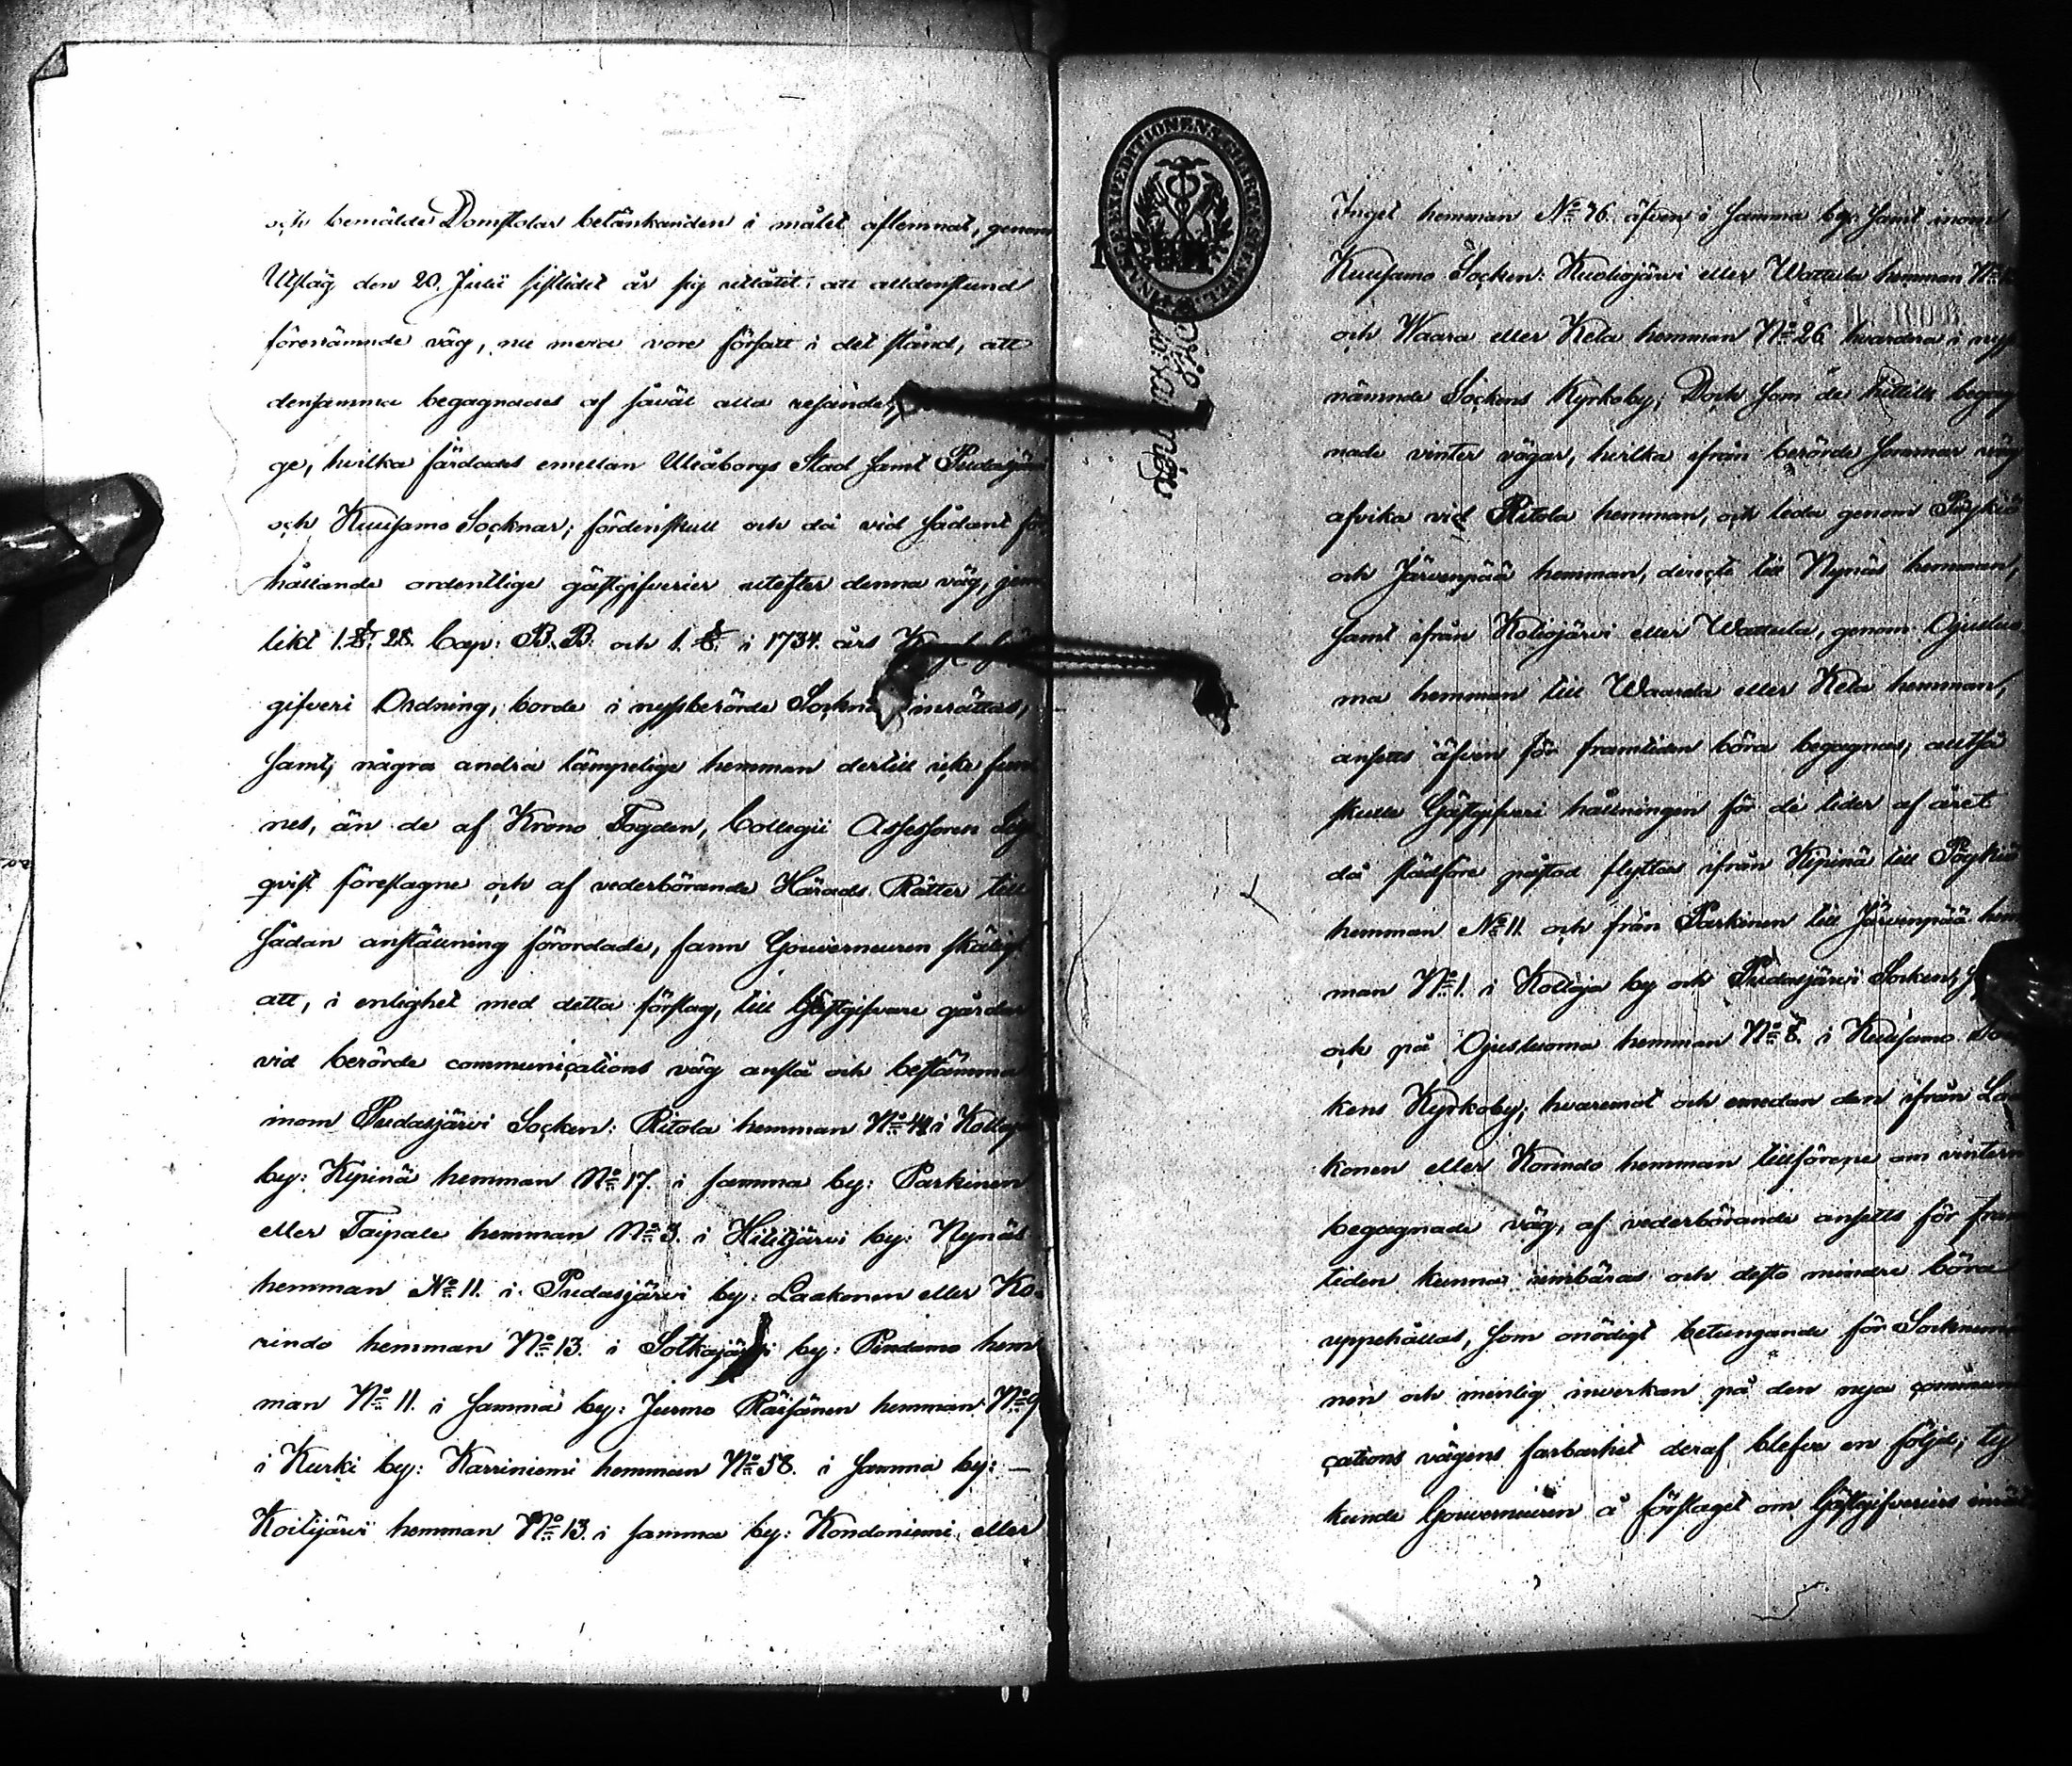 och bemälde Domstolar betänkanden i målet aflemnat, genom
Utslag den 20. Julii sistlidet år sig utlåtit: att alldenstund
förenämnde väg, nu mera vore försatt i det stånd, att
densamma begagnades af såväl alla resande,
ge, hvilka färdades emellan Uleåborgs Stad samt Pudasjärvi
och Kuusamo Socknar; fördenskull och då vid sådant för
hållande ordentlige gästgifverier utefter denna väg, jem
likt 1. §. 28. Cap: B. B. och 1. §. i 1734. års
gifveri Ordning, borde i nyssberörde inrättas,
samt, några andra lämpelige hemman dertill icke fun
nes, än de af Krono Fogden, Collegii Assessoren
qvist föreslagne och af vederbörande Härads Rätter till
sådan anställning förordade, fann Gouverneuren skäligt
att, i enlighet med detta förslag, till Gästgifvare gårdar
vid berörde communications väg anslå och bestämma
inom Pudasjärvi Socken: Ritola hemman No 44 i Kollaja
by: Kipinä hemman No 17. i samma by: Parkinen
eller Taipale hemman No 3. i Hilitjärvi by: Nynäs
hemman No 11. i Pudasjärvi by: Laakonen eller Ko-
rindo hemman No 13. i Sotkajärvi by: Pindamo hem
man No 11. i samma by: Jurmo Räisänen hemman No 9
i Kurki by: Karriniemi hemman No 58. i samma by: —
Koitijärvi hemman No 13. i samma by: Kondoniemi eller
FINANCE EXPEDITIONENS CHARTÆ STEMPEL
Inget hemman No 76. äfven i samma by: samt inom
Kuusamo Socken: Kuoliojärvi eller Wattula hemman No
och Waara eller Kela hemman No 26 hvardera i nyss
nämnde Sockens Kyrkoby; Dock som de hittills begag
nade vinter vägar, hvilka ifrån berörde sommar väg
afvika vid Ritola hemman, och leda genom Pöykiö
och Järvenpää hemman, directe till Nynäs hemman,
samt ifrån Koliojärvi eller Wattula, genom Ojustuo
ma hemman till Waarda eller Kela hemman,
ansetts äfven för framtiden böra begagnas, alltså
skulle Gästgifveri hållningen för de tider af året
då slädföre påstod flyttas ifrån Kipinä till Pöykiö
hemman No 11. och från Parkinen till Järvenpää hem
man No 1. i Kollaja by och Pudasjärvi Socken,
och på Ojustuoma hemman No 8. i Kuusamo Soc
kens Kyrkoby; hvaremot och emedan den ifrån Laa
konen eller Korindo hemman tillförene om vintern
begagnade väg, af vederbörande ansetts för fram
tiden kunna umbäras och desto mindre böra
uppehållas, som onödigt betungande för Sockne
nen och menlig inverkan på den nya commun
cations vägens farbarhet deraf blefve en följd; ty
kunde Gouverneuren å förslaget om Gästgifveriers inrät